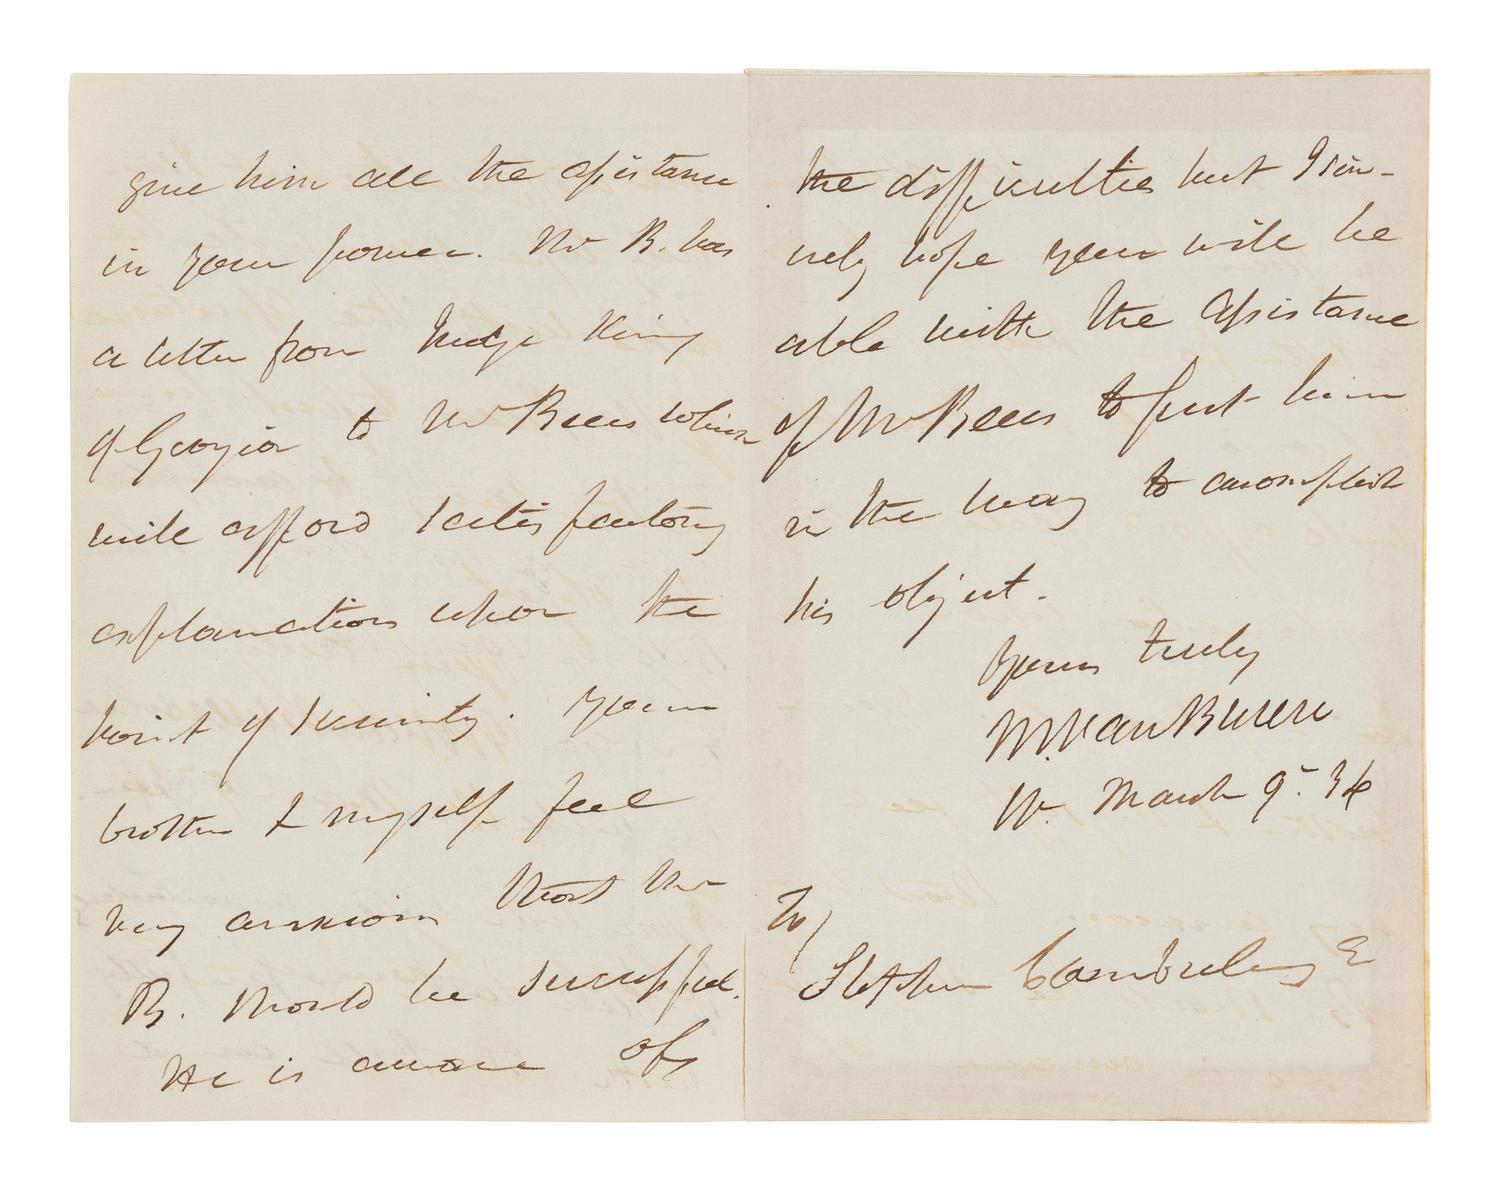 give him all the assistance
in your power. Mr B. has
a letter from Judge King
of Georgia to Mr Bees which
will afford satisfactory
explanations upon the
point of security. Your
brother & myself feel
very anxious that Mr
B. should be successful.
He is aware of
the difficulties but I sin-
cerely hope you will be
able with the assistance
of Mr Bees to put him
in the way to accomplish
his object.
Yours truly
M. Van Buren
W. March 9. 36
To
Stephen Cambreleng E